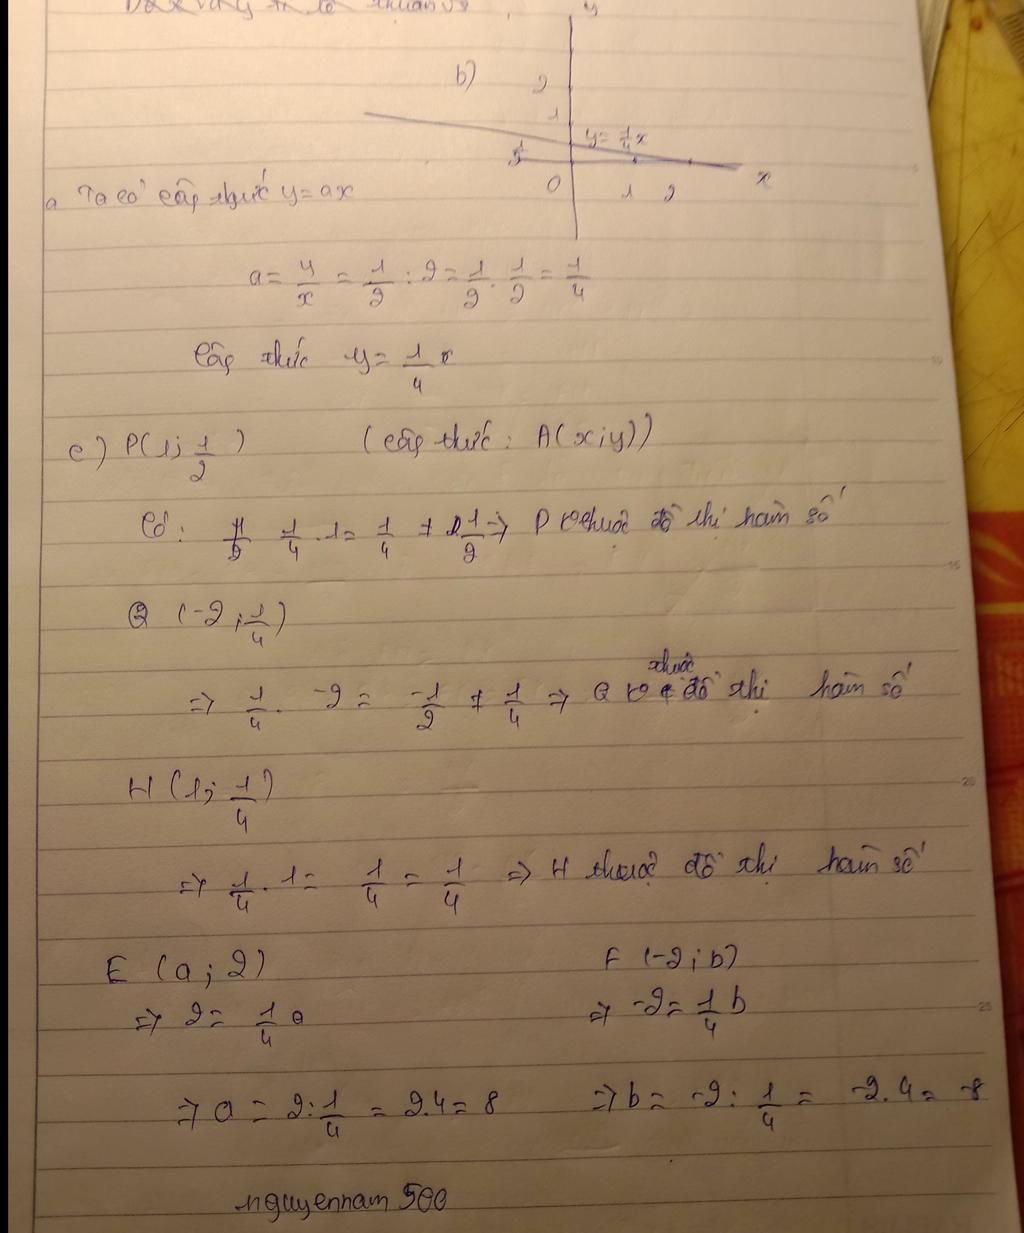 y
b)
2
1
y = 1/4 x
0
1 2
x
a Ta có công thức y = ax
a = y/x = 1/2 : 2 = 1/2 . 1/2 = 1/4
Công thức y = 1/4 x
c) P(1; 1/2) (công thức : A(x;y))
Có: 1/4 . 1 = 1/4 ≠ 1/2 => P thuộc đồ thị hàm số
Q (-2; 1/4)
=> 1/4 . -2 = -1/2 ≠ 1/4 => Q thuộc đồ thị hàm số
H (1; 1/4)
=> 1/4 . 1 = 1/4 = 1/4 => H thuộc đồ thị hàm số
E (a; 2) F (-2; b)
=> 2 = 1/4 a => -2 = 1/4 b
=> a = 2 : 1/4 = 2.4 = 8 => b = -2 : 1/4 = -2.4 = -8
nguyennam500